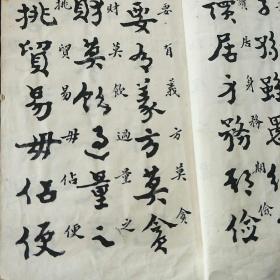 居身務期儉
居身務期儉
要有義方莫貪
要有義方莫貪
財莫飲過量之
財莫飲過量之
挑貿易毋佔便
挑貿易毋佔便